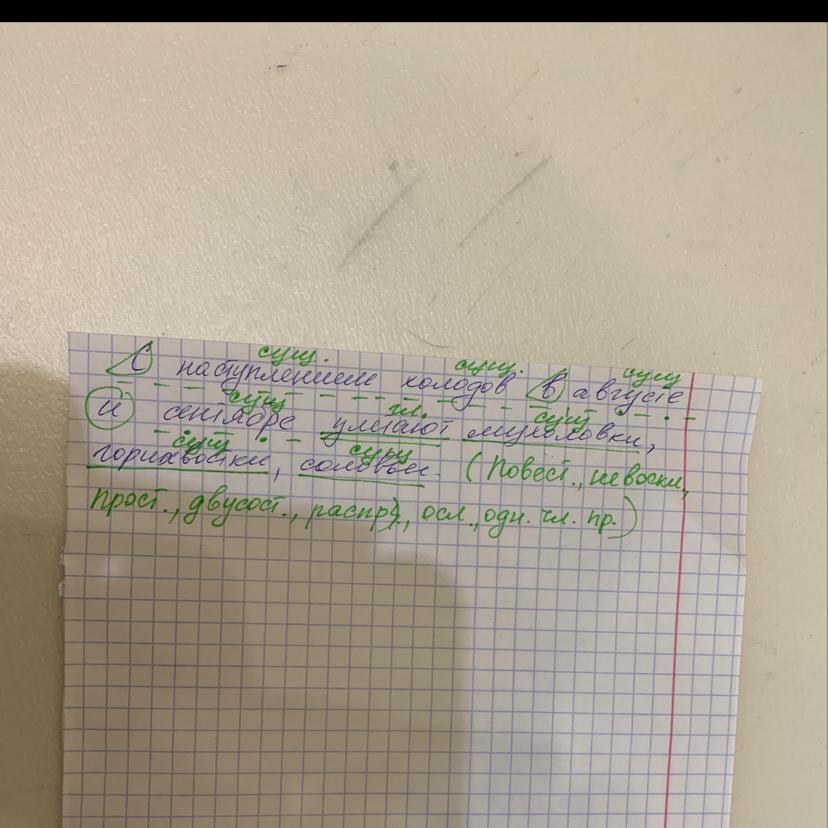 сущ. сущ. сущ
С наступлением холодов в августе
сущ гл. сущ
и сентябре улетают мухоловки,
сущ сущ
горихвостки, соловьи. (Повест., невоскл,
прост., двусост., распр., осл., одн. чл. пр.)